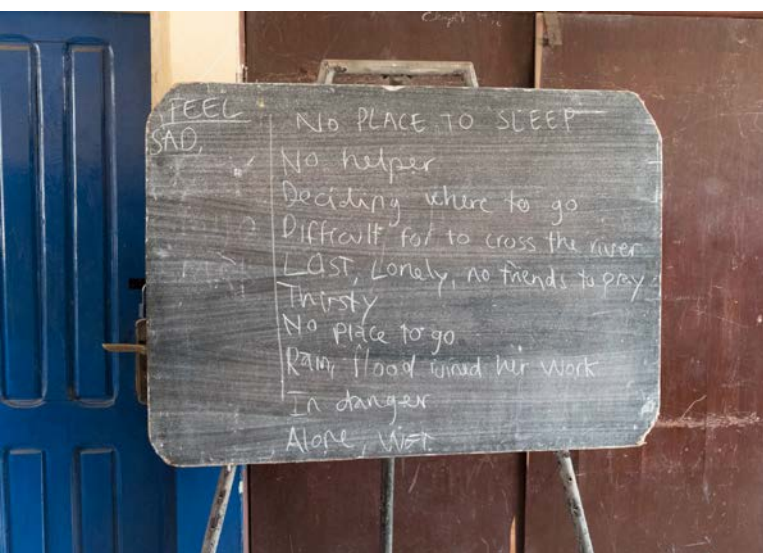 FEEL
SAD,
NO PLACE TO SLEEP
No helper
Deciding where to go
Difficult for to cross the river
LOST, Lonely, no friends to pray
Thirsty
No place to go
Rain, flood ruined her work
In danger
Alone, WET